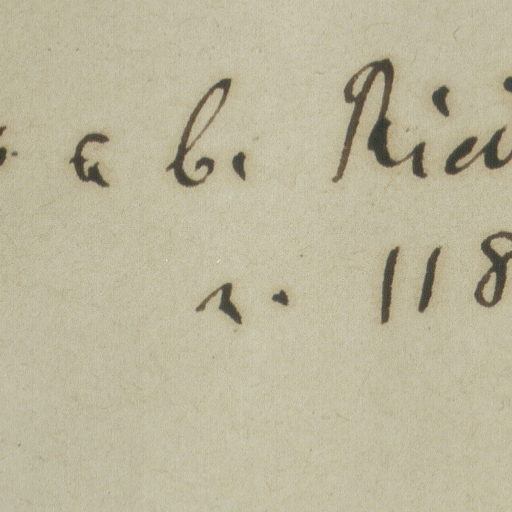 a b. Rici
r. 118